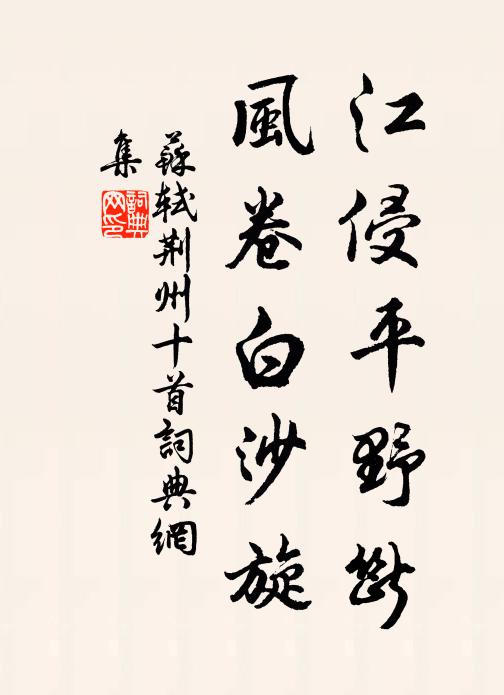 江侵平野斷
風卷白沙旋
蘇軾荆州十首詞典網
集
詞典
网印